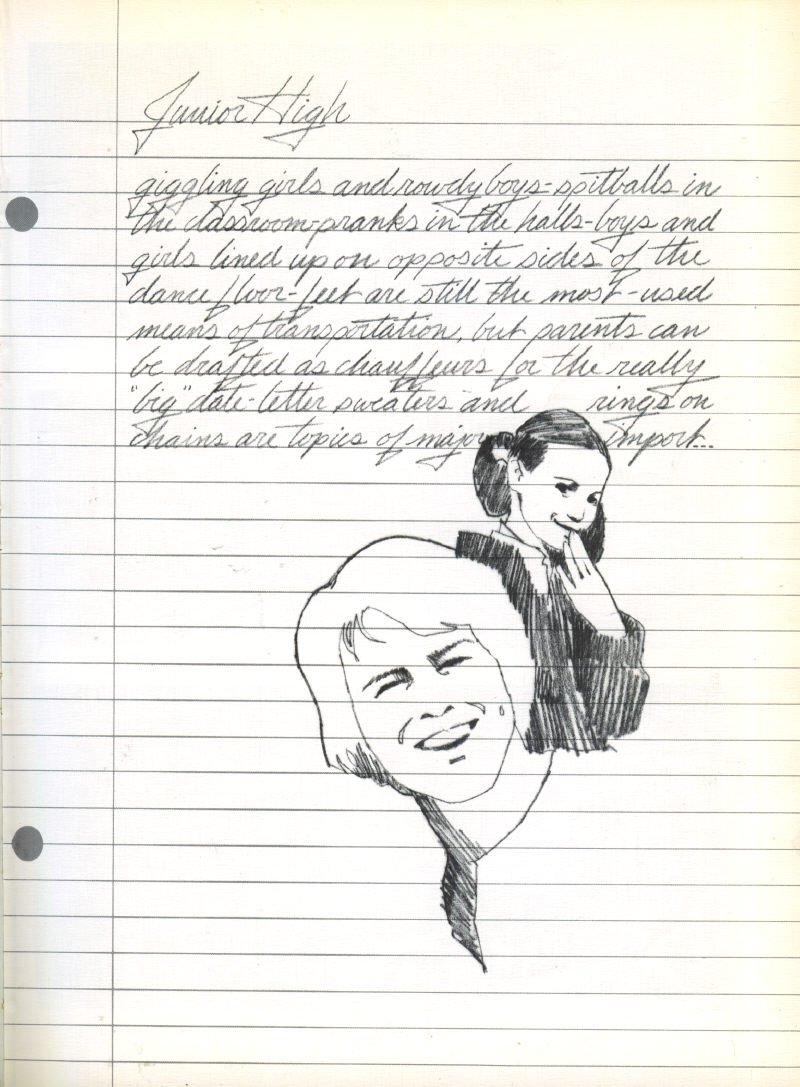 Junior High
giggling girls and rowdy boys-spitballs in
the classroom-pranks in the halls-boys and
girls lined up on opposite sides of the
dance floor-feet are still the most-used
means of transportation, but parents can
be drafted as chauffeurs for the really
"big" date-letter sweaters and rings on
chains are topics of major import...